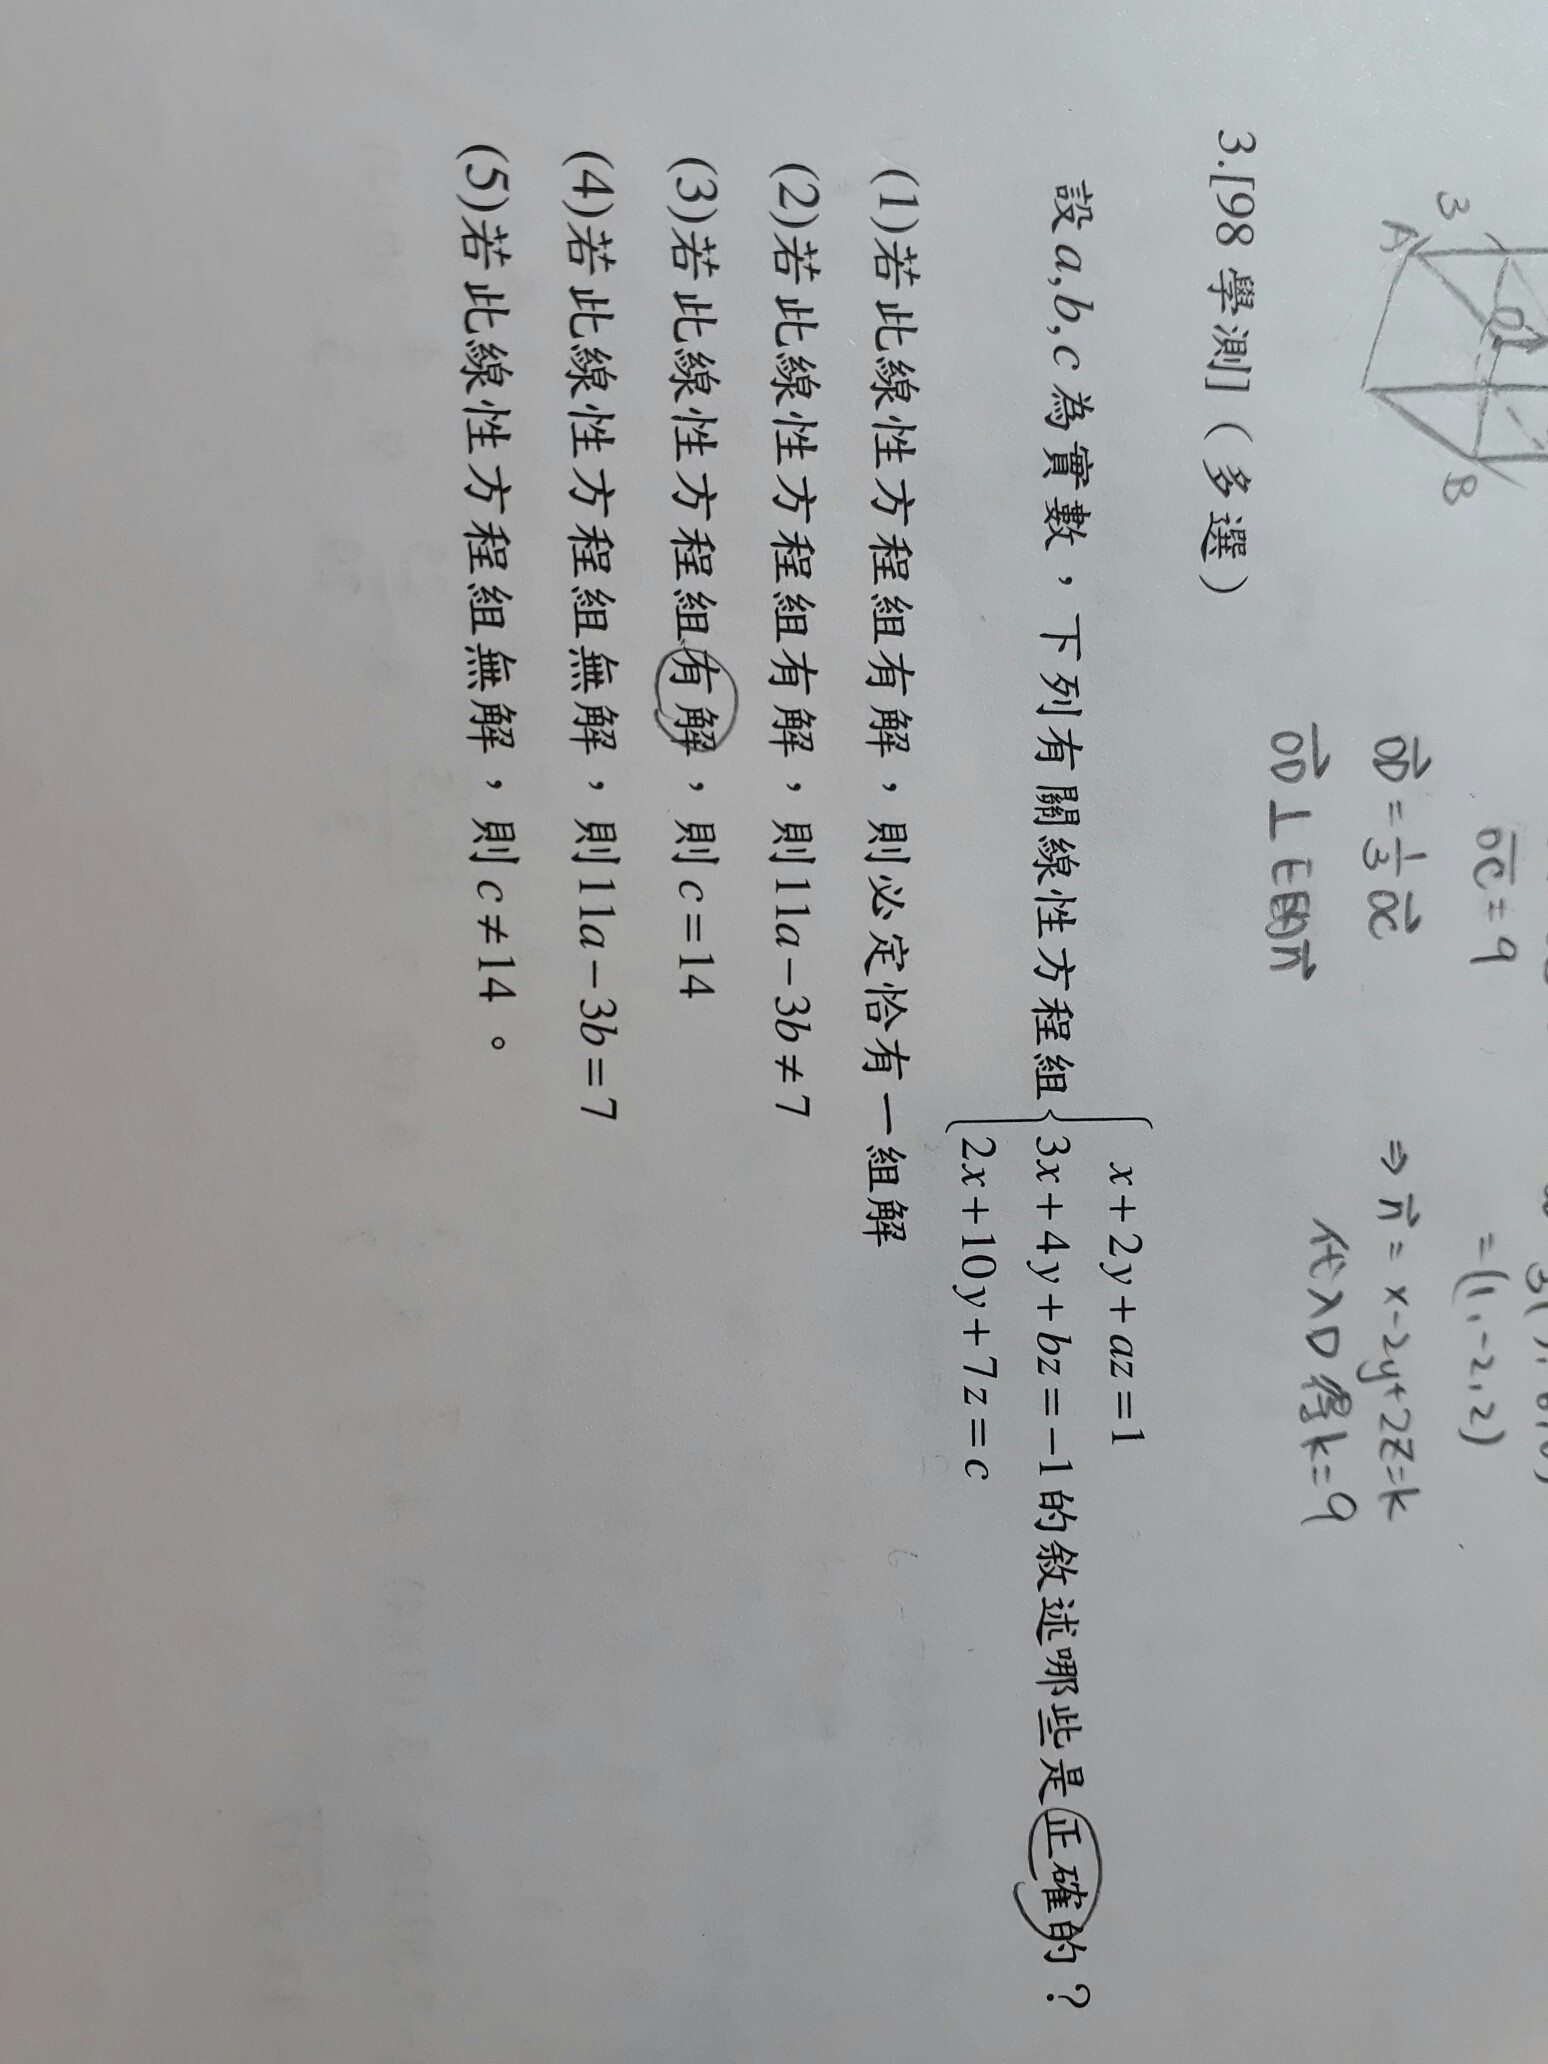 3
A
O
B
OC = 9
= (1, -2, 2)
OD = 1/3 OC
⇒ n = x - 2y + 2z = k
OD ⊥ E的n
代入D得k = 9
3.[98學測]（多選）
設a,b,c為實數，下列有關線性方程組{x+2y+az=1
3x+4y+bz=-1的敘述哪些是正確的？
2x+10y+7z=c
(1)若此線性方程組有解，則必定恰有一組解
(2)若此線性方程組有解，則11a-3b≠7
(3)若此線性方程組有解，則c=14
(4)若此線性方程組無解，則11a-3b=7
(5)若此線性方程組無解，則c≠14。